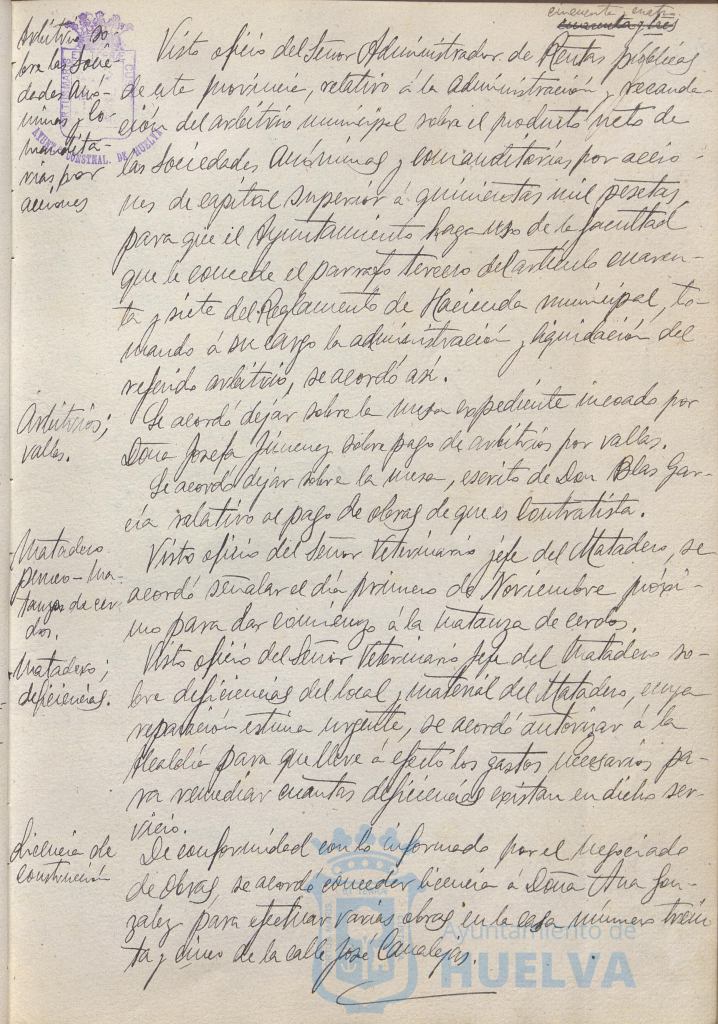 cincuenta y cuatro
cuarenta y tres
Arbitrio so-
bre las Socie-
dades Anó-
nimas y co-
mandita-
rias por
acciones
AYUNT. CONSTNAL. DE HUELVA
Visto oficio del Señor Administrador de Rentas públicas
de esta provincia, relativo á la administración y recauda-
ción del arbitrio municipal sobre el producto neto de
las Sociedades Anónimas y comanditarias por accio-
nes de capital superior á quinientas mil pesetas,
para que el Ayuntamiento haga uso de la facultad
que le concede el parrafo tercero del artículo cuaren-
ta y siete del Reglamento de Hacienda municipal, to-
mando á su cargo la administración y liquidación del
referido arbitrio, se acordó así.
Arbitrios;
vallas.
Se acordó dejar sobre la mesa expediente incoado por
Doña Josefa Jimenez sobre pago de arbitrios por vallas.
Se acordó dejar sobre la mesa, escrito de Don Blas Gar-
cía relativo al pago de obras de que es Contratista.
Matadero
ma-
tanza de cer-
dos.
Visto oficio del Señor Veterinario jefe del Matadero, se
acordó señalar el día primero de Noviembre próxi-
mo para dar comienzo á la matanza de cerdos.
Matadero;
deficiencias.
Visto oficio del Señor Veterinario Jefe del Matadero so-
bre deficiencias del local y material del Matadero, cuya
reparación estima urgente, se acordó autorizar á la
Alcaldía para que lleve á efecto los gastos necesarios pa-
ra remediar cuantas deficiencias existan en dicho ser-
vicio.
Licencia de
construcción
De conformidad con lo informado por el Negociado
de Obras se acordó conceder licencia á Doña Ana Gon-
zalez para efectuar varias obras en la casa número trein-
ta y cinco de la calle José Canalejas.
Ayuntamiento de
HUELVA